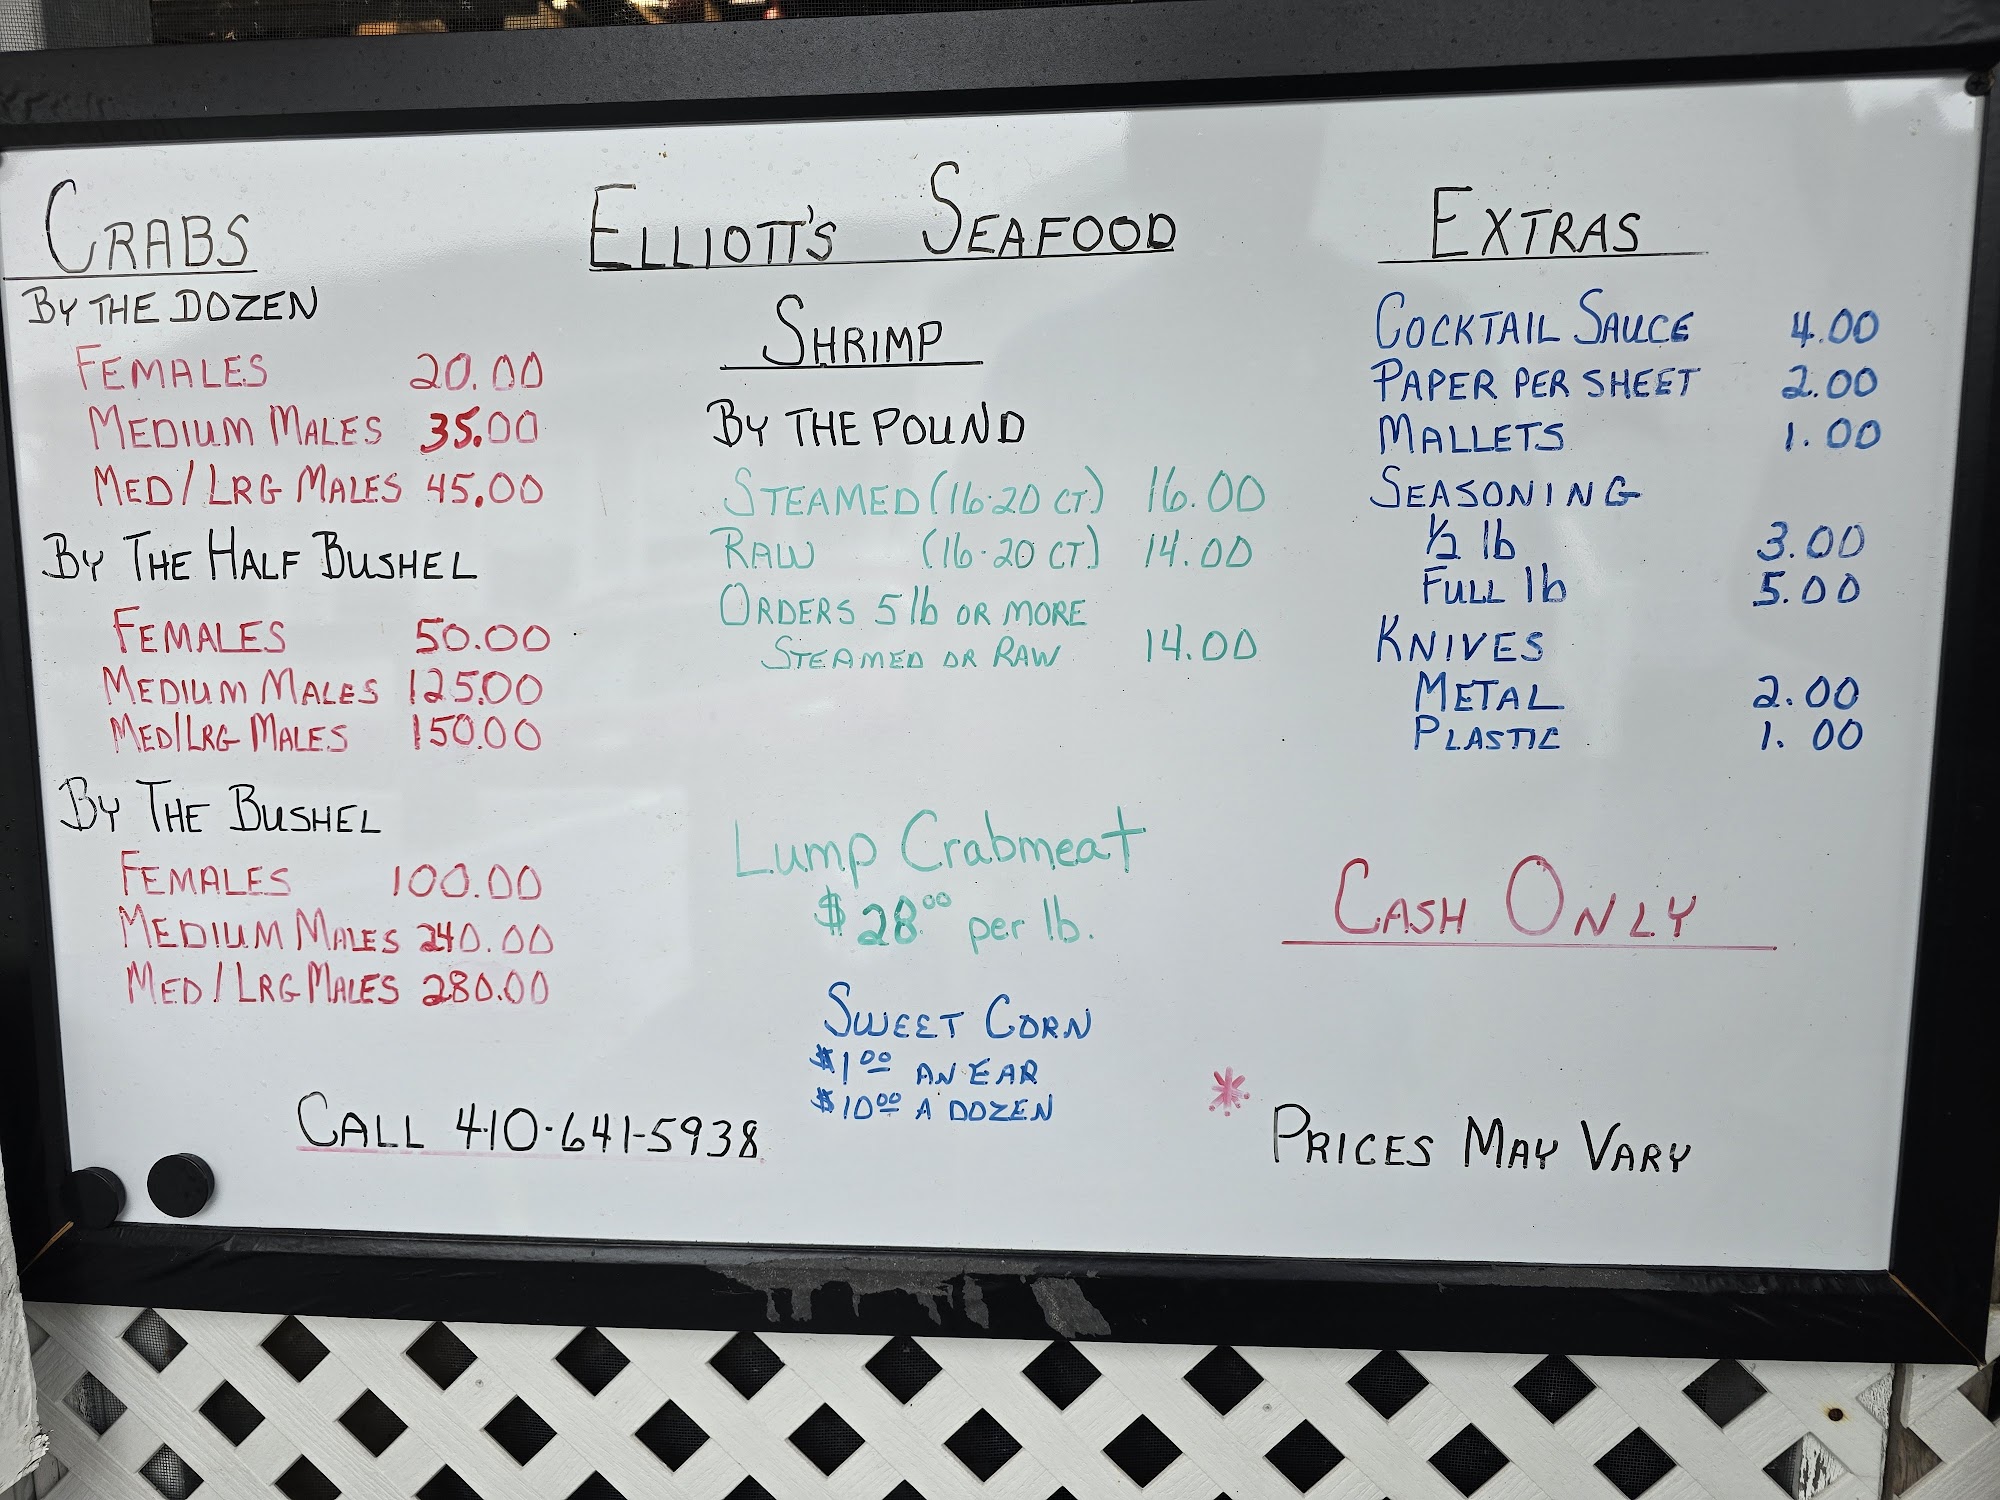 ELLIOTT'S SEAFOOD
CRABS
BY THE DOZEN
FEMALES 20.00
MEDIUM MALES 35.00
MED/LRG MALES 45.00
BY THE HALF BUSHEL
FEMALES 50.00
MEDIUM MALES 125.00
MED/LRG MALES 150.00
BY THE BUSHEL
FEMALES 100.00
MEDIUM MALES 240.00
MED/LRG MALES 280.00
CALL 410-641-5938
SHRIMP
BY THE POUND
STEAMED (16-20 CT.) 16.00
RAW (16-20 CT.) 14.00
ORDERS 5 lb OR MORE
STEAMED OR RAW 14.00
Lump Crabmeat
$28.00 per lb.
SWEET CORN
$1.00 AN EAR
$10.00 A DOZEN
EXTRAS
COCKTAIL SAUCE 4.00
PAPER PER SHEET 2.00
MALLETS 1.00
SEASONING
1/2 lb 3.00
FULL lb 5.00
KNIVES
METAL 2.00
PLASTIC 1.00
CASH ONLY
* PRICES MAY VARY